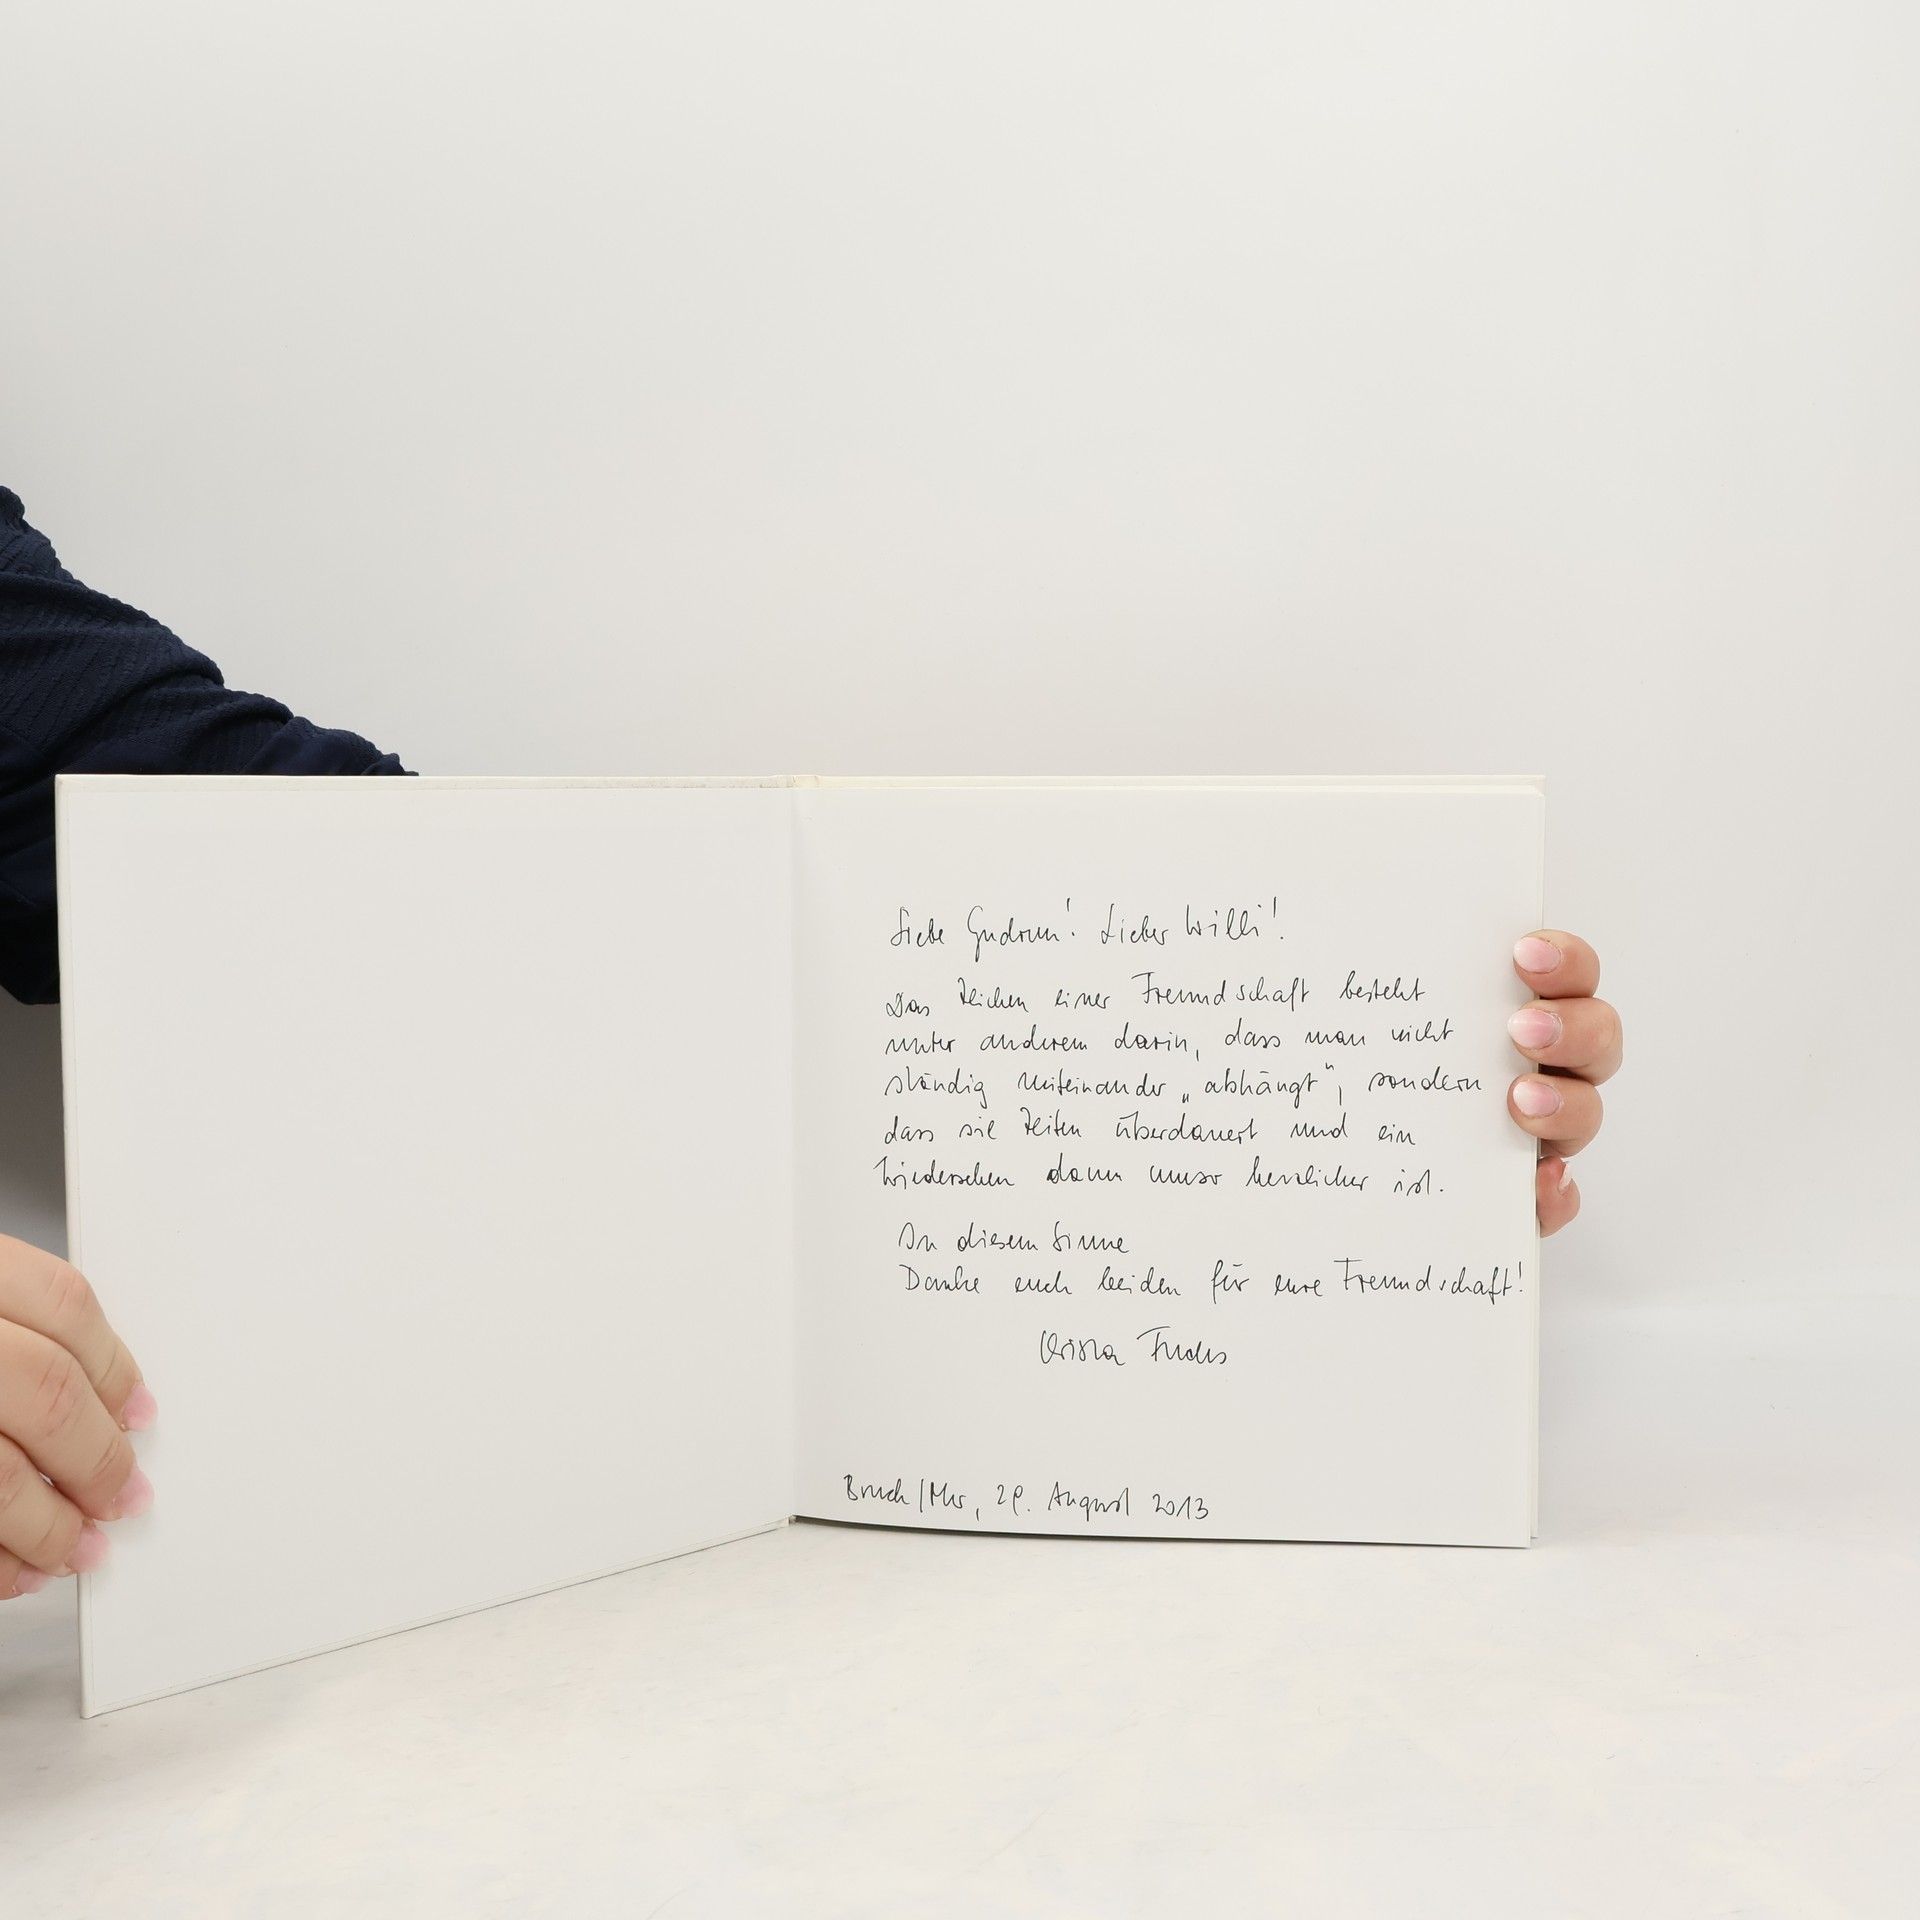 Liebe Gudrun! Lieber Willi!
Das Zeichen einer Freundschaft besteht
unter anderem darin, dass man nicht
ständig miteinander „abhängt“, sondern
dass sie Zeiten überdauert und ein
Wiedersehen dann umso herzlicher ist.
In diesem Sinne
Danke euch beiden für eure Freundschaft!
Christa Fuchs
Bruck/Mur, 29. August 2013